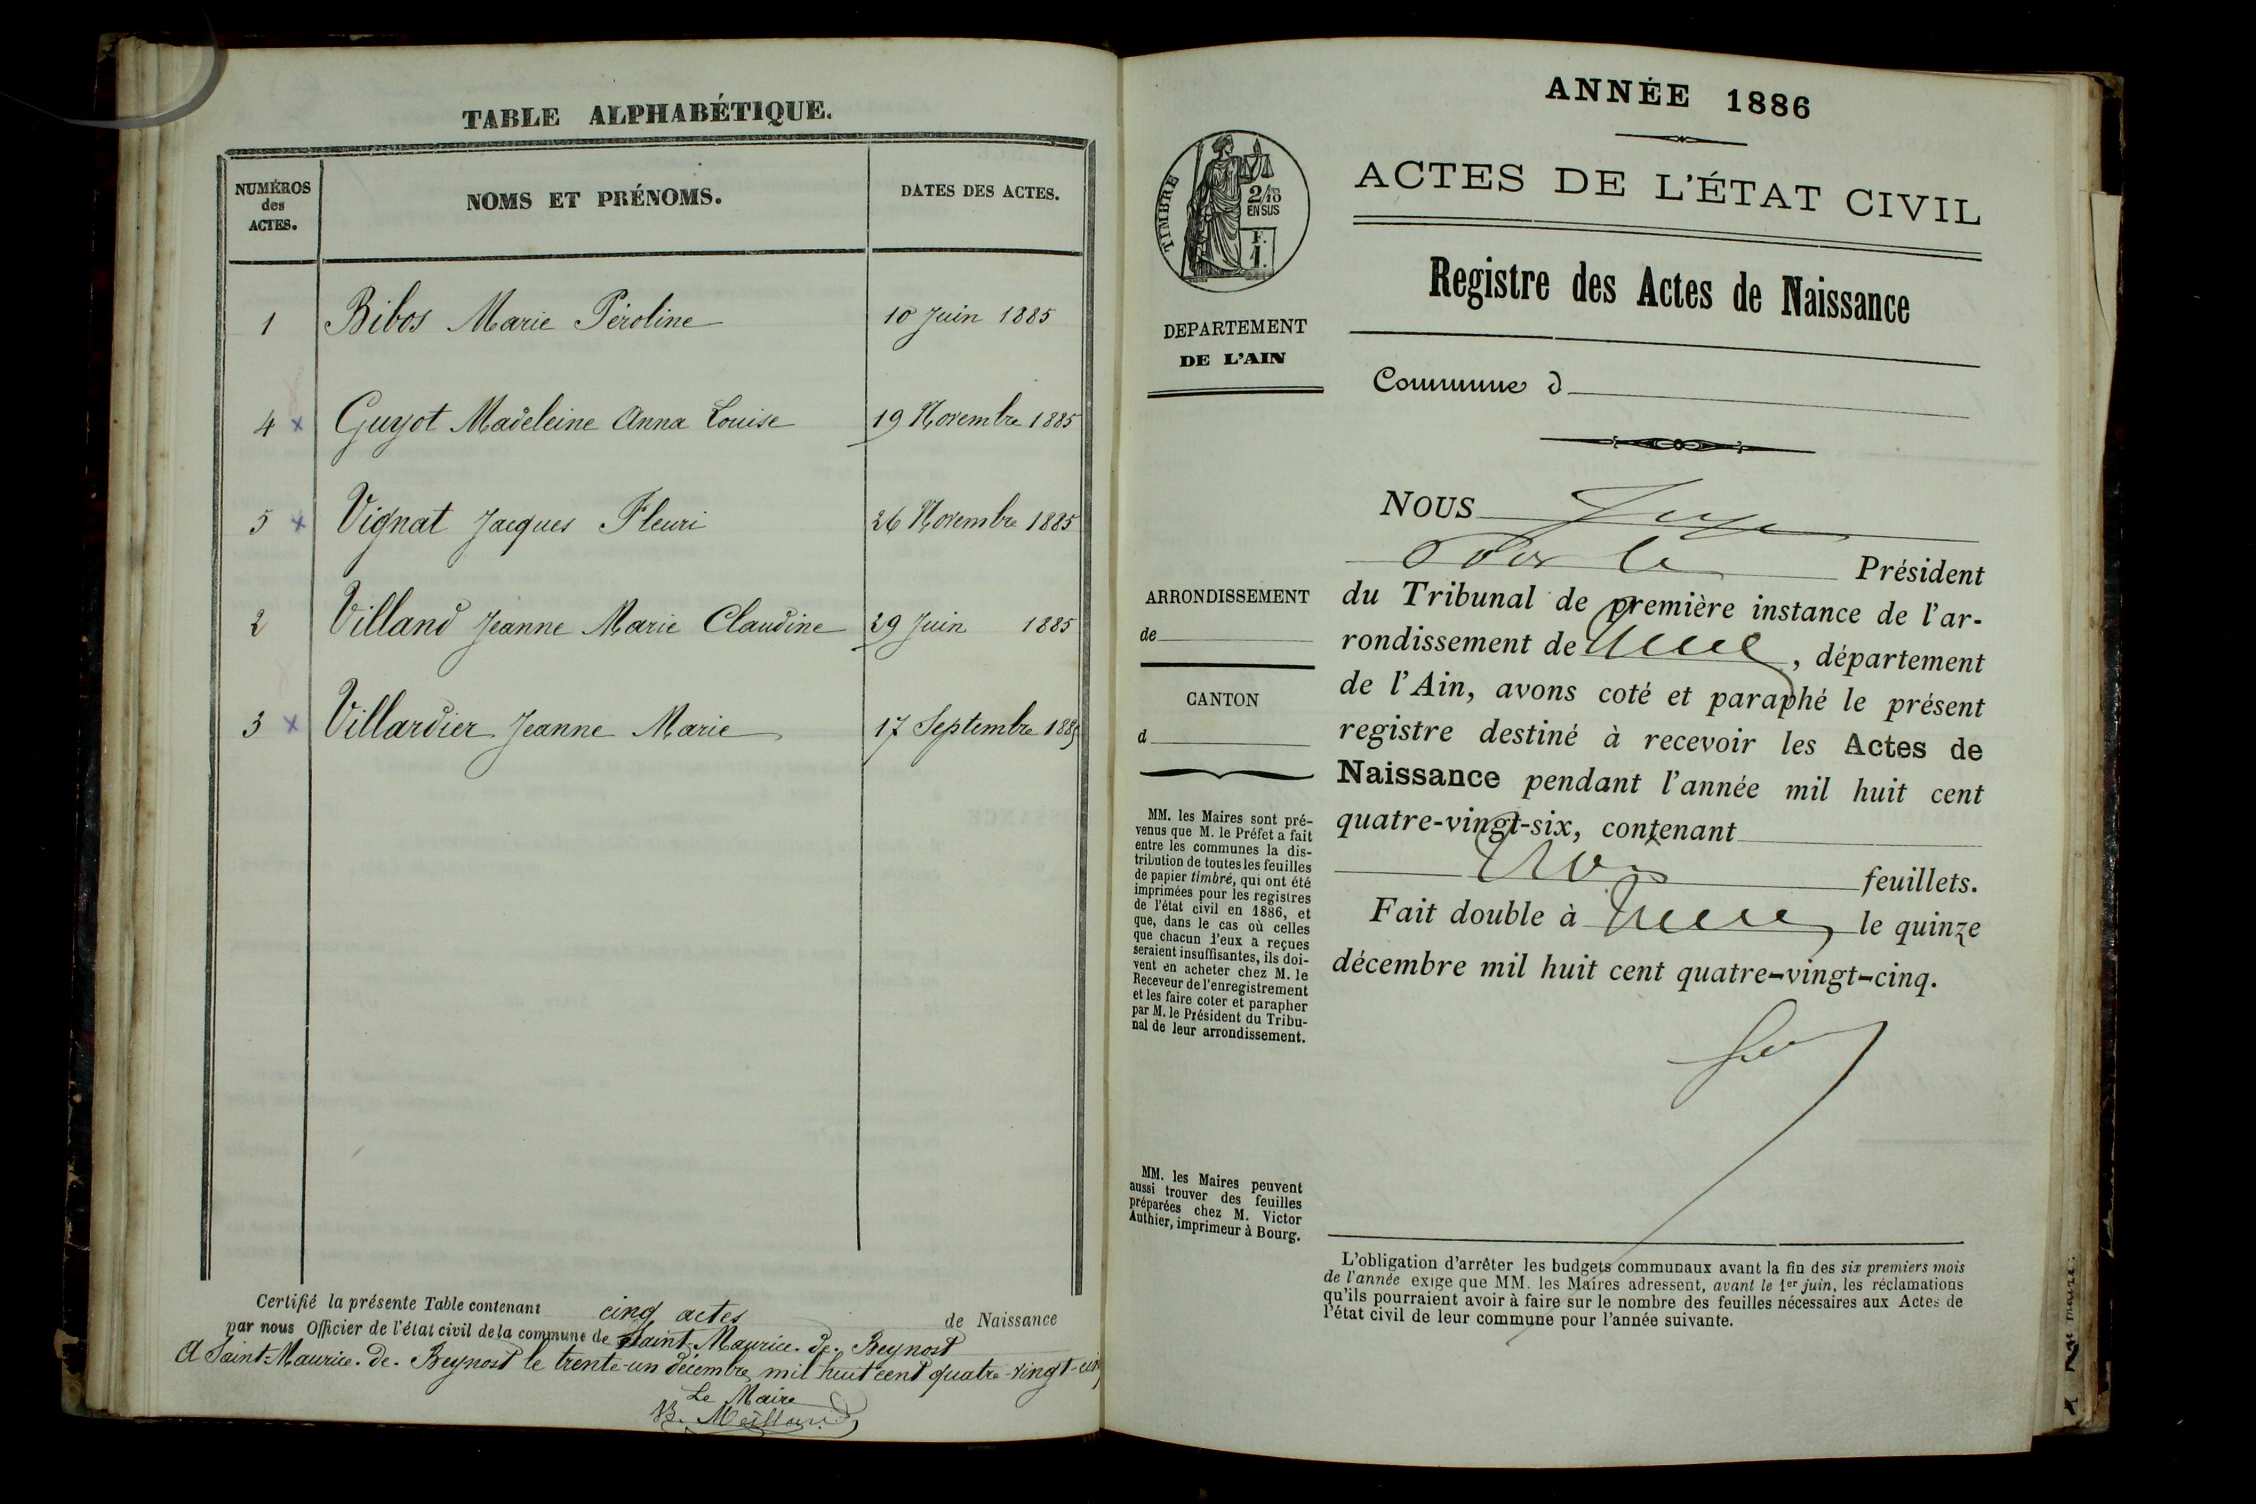 TABLE ALPHABÉTIQUE.
NUMÉROS
des
ACTES.
NOMS ET PRÉNOMS.
DATES DES ACTES.
1 Bibos Marie Péroline 10 Juin 1885
4 x Guyot Madeleine Anna Louise 19 Novembre 1885
5 x Vignat Jacques Fleuri 26 Novembre 1885
2 Villand Jeanne Marie Claudine 29 Juin 1885
3 x Villardier Jeanne Marie 17 Septembre 1885
Certifié la présente Table contenant cinq actes de Naissance
par nous Officier de l'état civil de la commune de Saint-Maurice-de-Beynost
A Saint-Maurice-de-Beynost le trente-un décembre mil huit cent quatre-vingt-cinq
Le Maire
ANNÉE 1886
ACTES DE L'ÉTAT CIVIL
TIMBRE
2/10
EN SUS
F.
1.
Registre des Actes de Naissance
DEPARTEMENT
DE L'AIN
Commune d
NOUS Juge
Pour le Président
du Tribunal de première instance de l'ar-
ARRONDISSEMENT
de
rondissement de , département
de l'Ain, avons coté et paraphé le présent
CANTON
d
registre destiné à recevoir les Actes de
Naissance pendant l'année mil huit cent
quatre-vingt-six, contenant
trois feuillets.
Fait double à le quinze
décembre mil huit cent quatre-vingt-cinq.
MM. les Maires sont pré-
venus que M. le Préfet a fait
entre les communes la dis-
tribution de toutes les feuilles
de papier timbré, qui ont été
imprimées pour les registres
de l'état civil en 1886, et
que, dans le cas où celles
que chacun d'eux a reçues
seraient insuffisantes, ils doi-
vent en acheter chez M. le
Receveur de l'enregistrement
et les faire coter et parapher
par M. le Président du Tribu-
nal de leur arrondissement.
MM. les Maires peuvent
aussi trouver des feuilles
préparées chez M. Victor
Authier, imprimeur à Bourg.
L'obligation d'arrêter les budgets communaux avant la fin des six premiers mois
de l'année exige que MM. les Maires adressent, avant le 1er juin, les réclamations
qu'ils pourraient avoir à faire sur le nombre des feuilles nécessaires aux Actes de
l'état civil de leur commune pour l'année suivante.